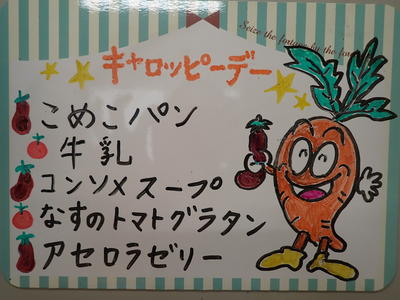 Seize the fortune by the for
キャロッピーデー
こめこパン
牛乳
コンソメスープ
なすのトマトグラタン
アセロラゼリー